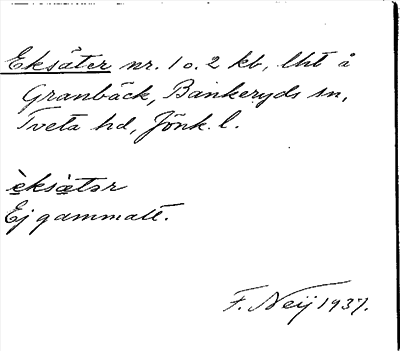 Eksäter nr. 1 o. 2 kb, lht å
Granbäck, Bankeryds sn,
Tveta hd, Jönk. l.
èksä̀tər
Ej gammalt.
F. Neij 1937.